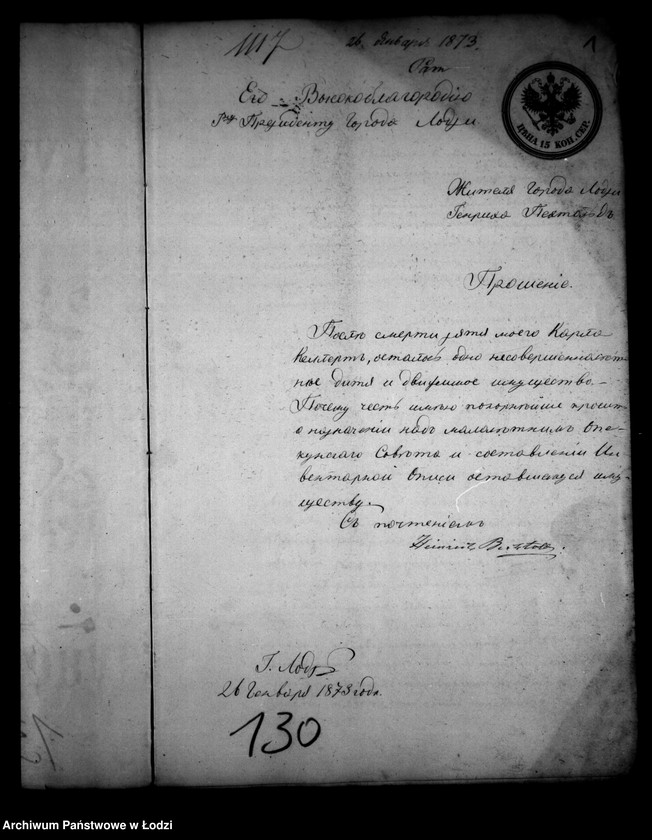 1117
26 Января 1873.
1
Его Высокоблагородію
Президенту Города Лодзи
ЦѢНА 15 КОП. СЕР.
Жителя Города Лодзи
Генриха
Прошеніе.
После смерти зятя моего Карла
осталось одно несовершеннолет
ное дитя и движимое имущество.
Почему честь имею покорнѣйше просить
о назначеніи надъ малолѣтнимъ Опе-
кунскаго Совѣта и составленіи Ин
вентарной Описи оставшемуся иму-
ществу.
Съ почтеніемъ
Heinrich
Г. Лодзь
26 Генваря 1873 года.
130
Archiwum Państwowe w Łodzi